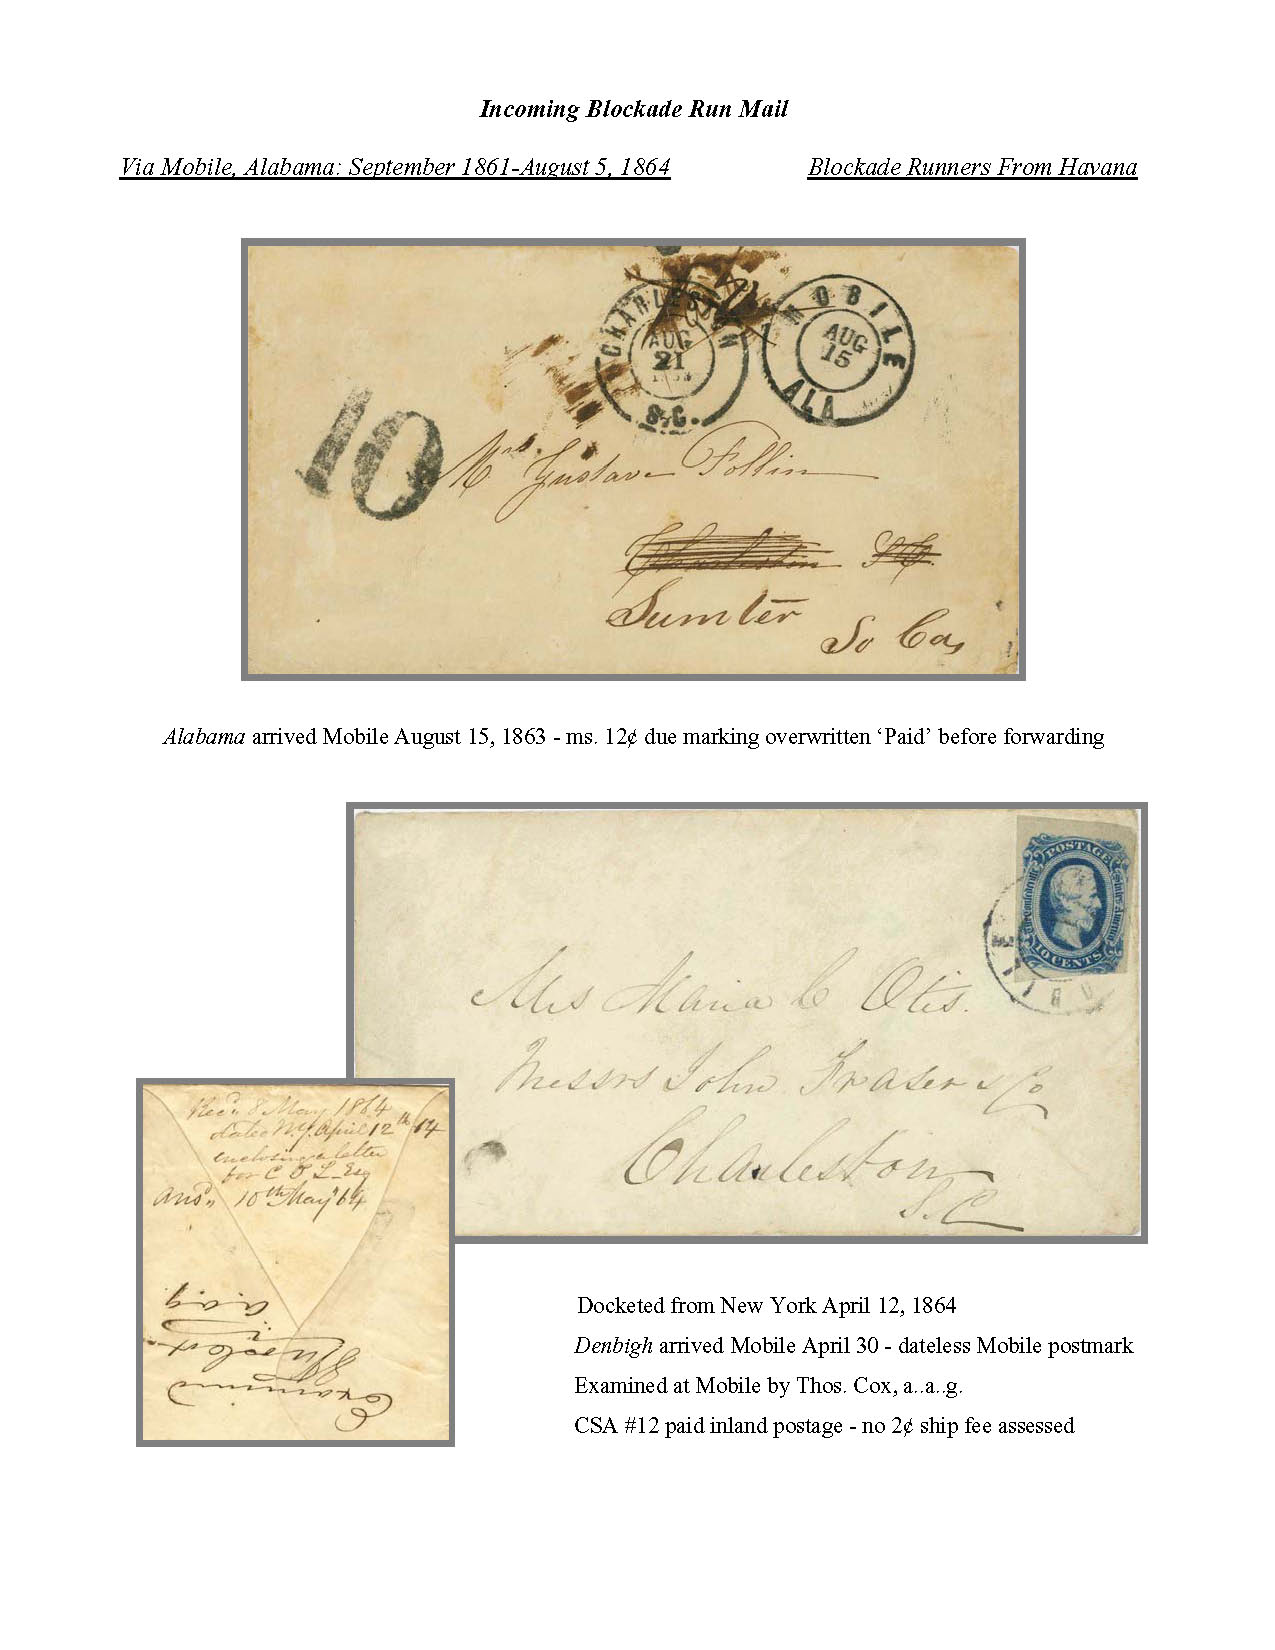 Incoming Blockade Run Mail
Via Mobile, Alabama: September 1861-August 5, 1864
Blockade Runners From Havana
CHARLESTON
AUG
21
S.C.
MOBILE
AUG
15
ALA
10
Mrs Gustave Follin
Charleston SC.
Sumter
So Ca,
Alabama arrived Mobile August 15, 1863 - ms. 12¢ due marking overwritten ‘Paid’ before forwarding
POSTAGE
The Confederate States America
10 CENTS
Mrs Maria C Otis.
Messrs John Fraser & Co
Charleston
S.C
Recd. 8 May 1864
dated N.Y. April 12th /64
enclosing a letter
for C O L_ Esq
Ansd,, 10th May '64
Examined
a.a.g.
Docketed from New York April 12, 1864
Denbigh arrived Mobile April 30 - dateless Mobile postmark
Examined at Mobile by Thos. Cox, a..a..g.
CSA #12 paid inland postage - no 2¢ ship fee assessed